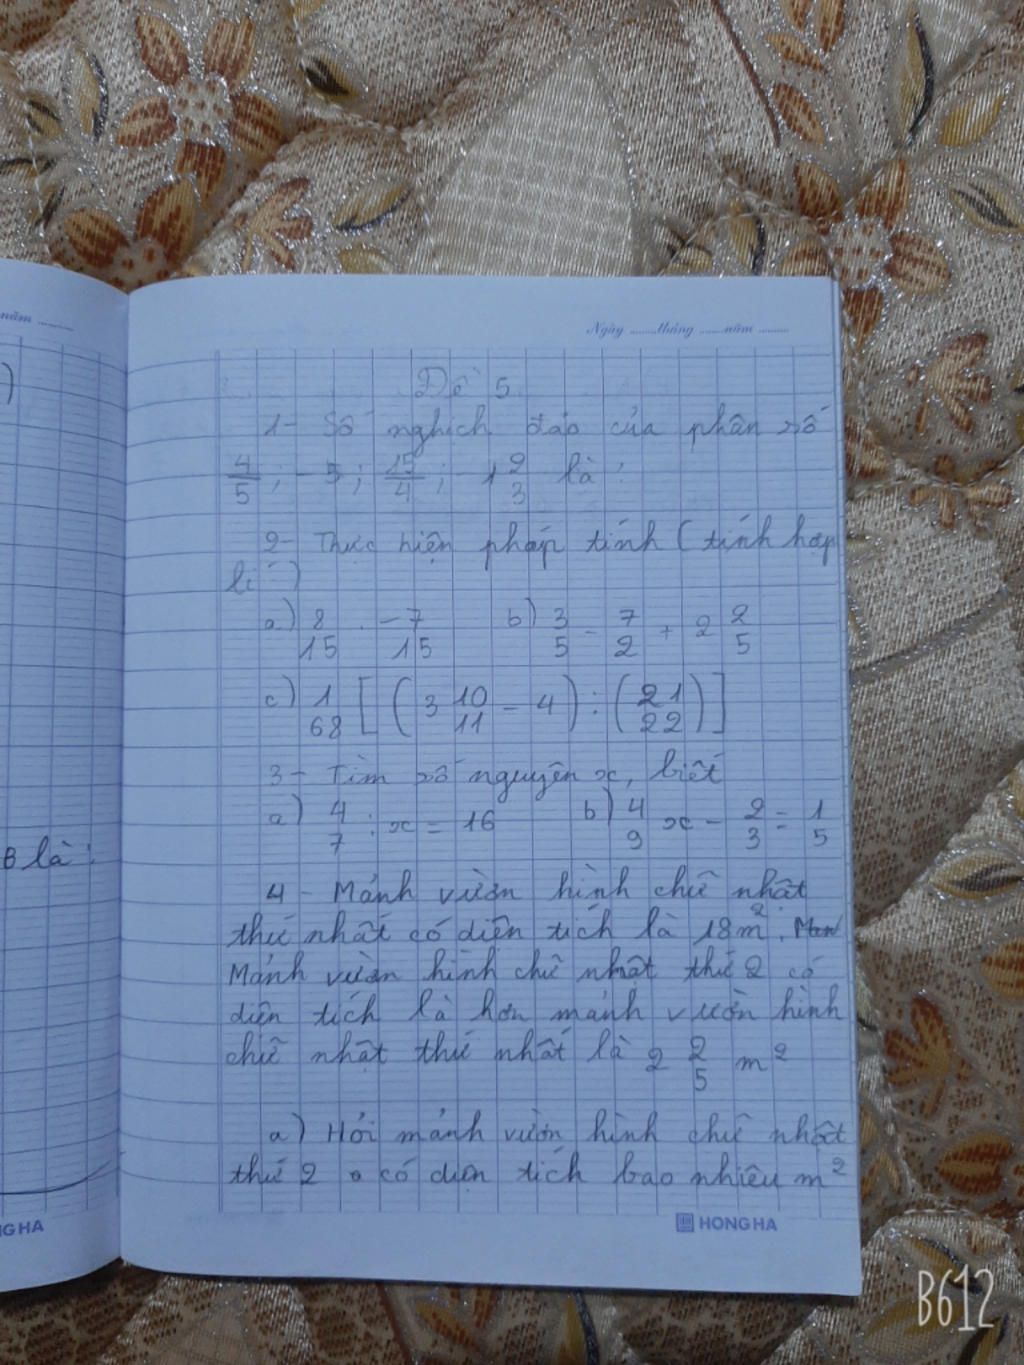 năm ........
)
B là:
NG HA
Ngày ........tháng ........năm ..........
Đề 5
1- Số nghịch đảo của phân số
4/5 ; -5 ; 15/4 ; -1 2/3 là :
2- Thực hiện pháp tính ( tính hợp
lí )
a) 8/15 . -7/15 b) 3/5 - 7/2 + 2 2/5
c) 1/68 [ ( 3 10/11 - 4 ) : ( 21/22 ) ]
3- Tìm số nguyên x, biết
a) 4/7 : x = 16 b) 4/9 x - 2/3 = 1/5
4- Mảnh vườn hình chữ nhật
thứ nhất có diện tích là 18m².
Mảnh vườn hình chữ nhật thứ 2 có
diện tích là hơn mảnh vườn hình
chữ nhật thứ nhất là 2 2/5 m²
a) Hỏi mảnh vườn hình chữ nhật
thứ 2 có diện tích bao nhiêu m²
HONG HA
B612